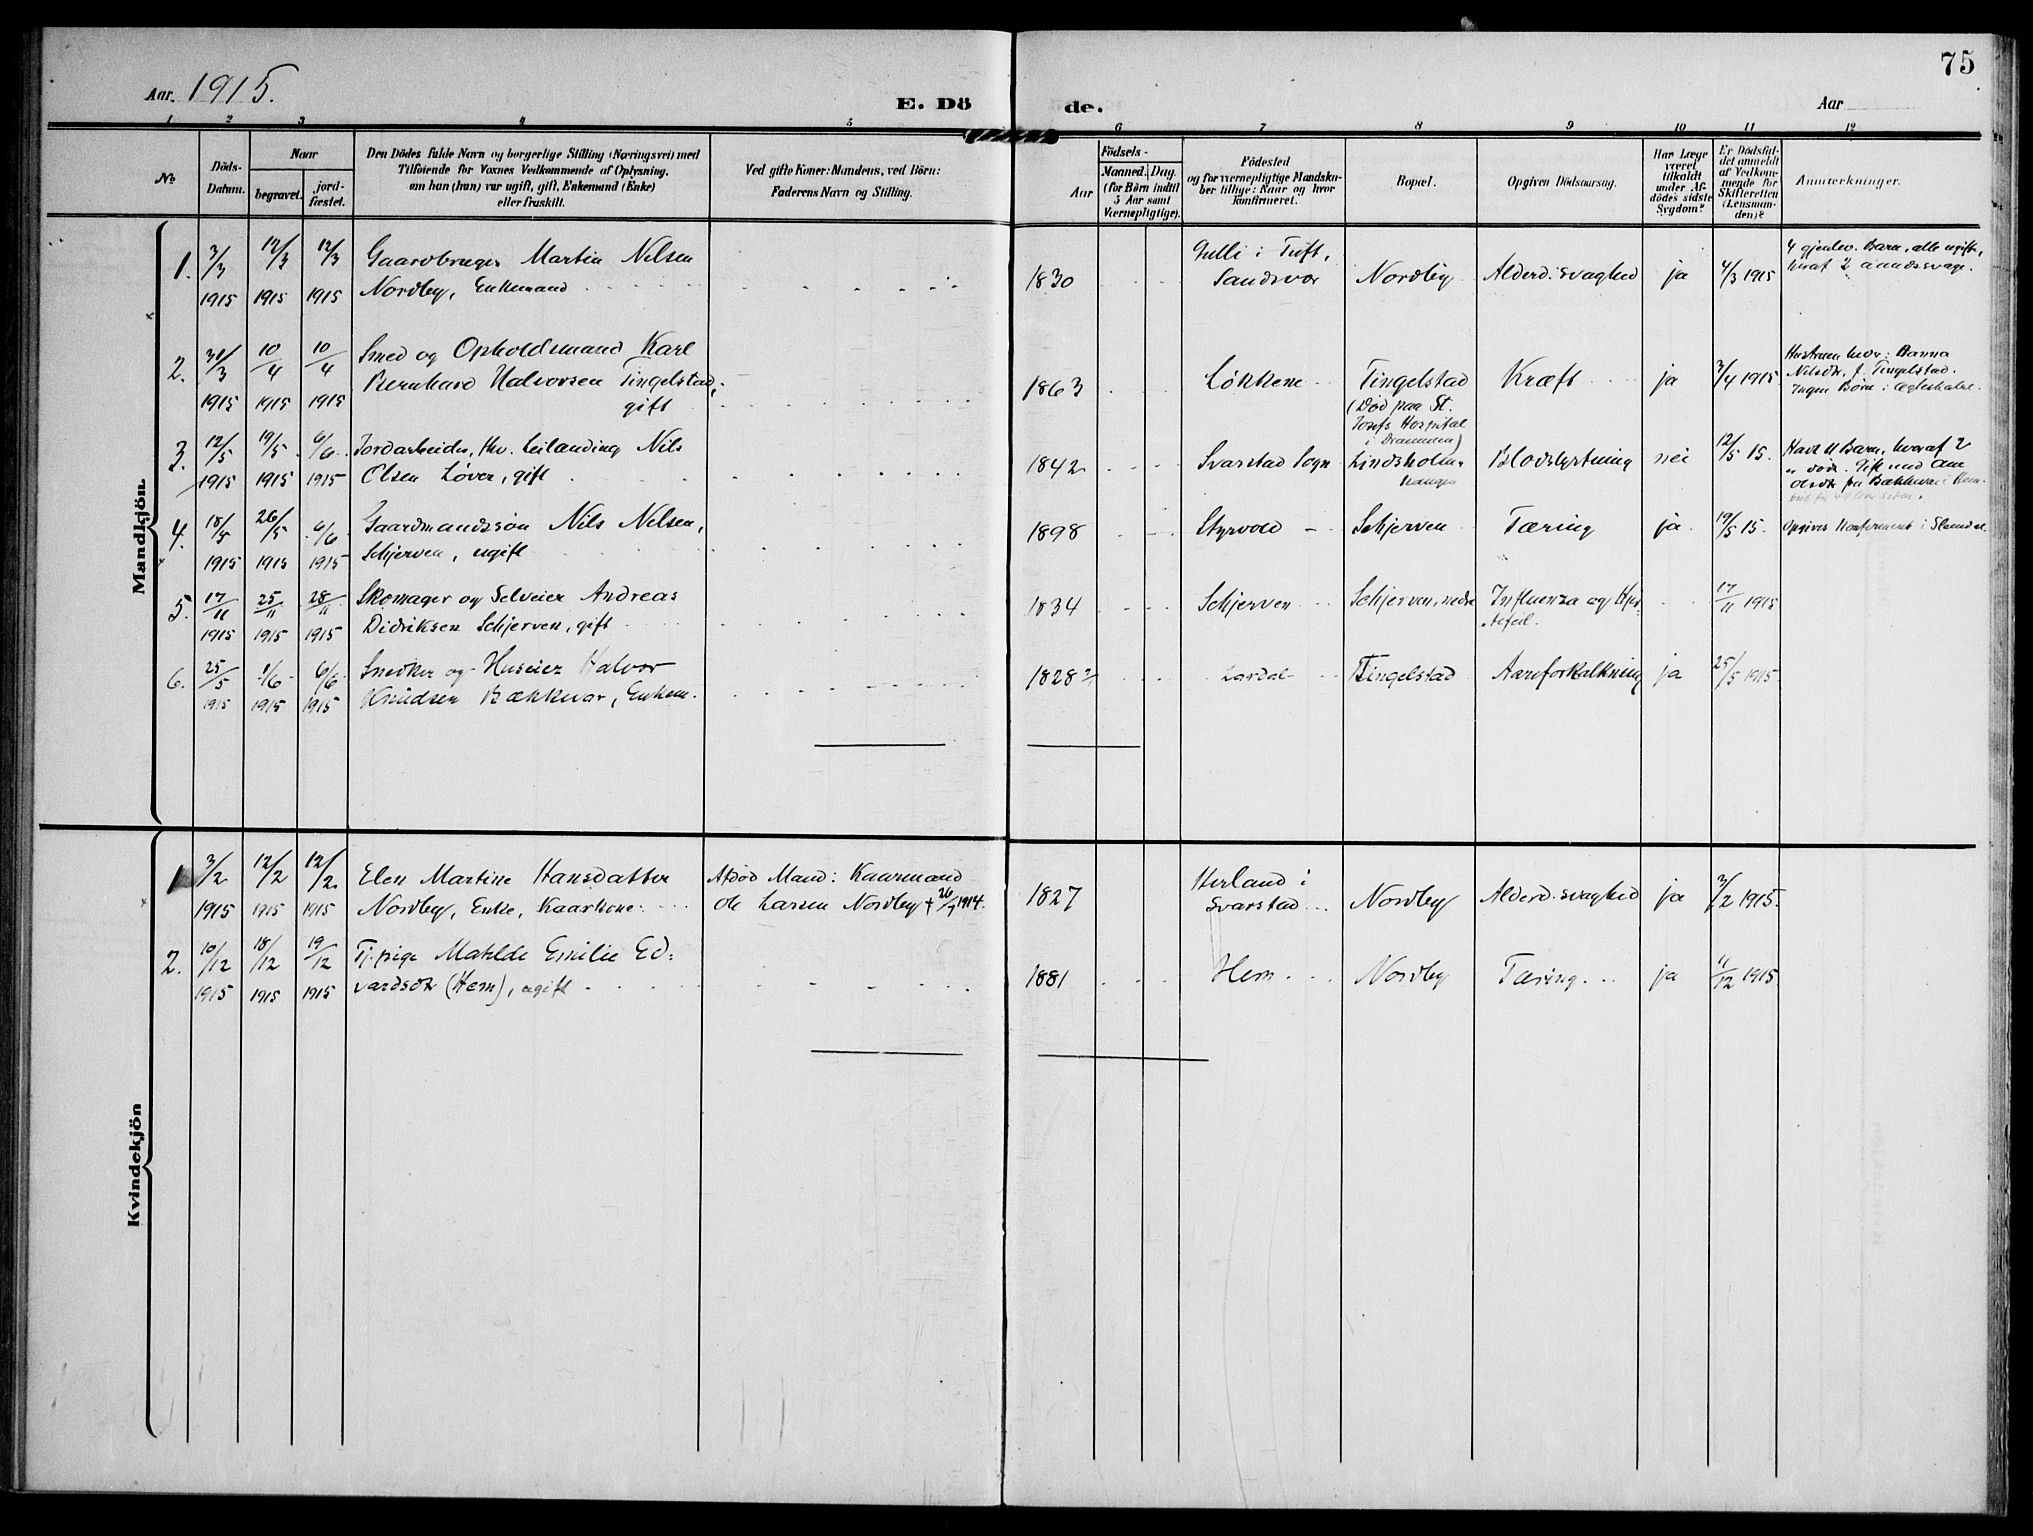 75
Aar. 1915.
E. Dö de.
Aar
1 2 3 4 5 6 7 8 9 10 11 12
No
Döds-Datum.
Naar
begravet.
jord-fæstet.
Den Dödes fulde Navn og borgerlige Stilling (Næringsvei) med
Tilföiende for Voxnes Vedkommende af Oplysning,
om han (hun) var ugift, gift, Enkemand (Enke)
eller fraskilt.
Ved gifte Koner: Mandens, ved Börn:
Faderens Navn og Stilling.
Födsels-
Aar
Maaned. Dag.
(for Börn indtil
5 Aar samt
Værnepligtige).
Födested
og for værnepligtige Mandska-
ber tillige: Naar og hvor
konfirmeret.
Bopæl.
Opgiven Dödsaarsag.
Har Læge
været
tilkaldt
under Af-
dödes sidste
Sygdom?
Er Dödsfal-
det anmeldt
af Vedkom-
mende for
Skifteretten
(Lensman-
den)?
Anmerkninger.
Mandkjön.
1. 3/3 12/3 12/3 Gaardbruger Martin Nilsen
1915 1915 1915 Nordby, Enkemand
1830 Gulli i Tuft, Sandsvær Nordby Alderd.svaghed ja 4/3 1915
4 gjenlev. Barn, alle ugifte,
hvraf 2 aandssvage.
2. 31/3 10/4 10/4 Smed og Opholdsmand Karl
1915 1915 1915 Bernhard Halvorsen Tingelstad,
gift
1863 Løkkene Tingelstad
(Død paa St.
Josefs Hospital
i Drammen)
Kræft ja 3/4 1915
Hustruen hedr: Hanna
Nilsdtr. f. Tingelstad.
Ingen Børn i Ægteskabet.
3. 12/5 19/5 6/6 Jordarbeider, fhv. Leilænding Nils
1915 1915 1915 Olsen Løver, gift
1842 Svarstad Sogn Lindsholm-
Blodstyrtning nei 12/5 15.
Havt 11 Barn, hvoraf 2
døde. Gift med Ane
Olsdtr
4. 18/5 26/5 6/6 Gaardmandssøn Nils Nilsen,
1915 1915 1915 Schjerven, ugift
1898 Styrvold Schjerven Tæring ja 19/5 15.
Opgives Konfirmeret i Slemdal
5. 17/11 25/11 28/11 Skomager og Selveier Andreas
1915 1915 1915 Didriksen Schjerven, gift
1834 Schjerven Schjerven, nedre Influenza og Hjer-
tefeil. 17/11 1915
6. 25/5 1/6 6/6 Snedker og Huseier Halvor
1915 1915 1915 Knudsen Bækkevar, Enkem.
1828? Lardal Tingelstad Aareforkalkning ja 25/5 1915
Kvindekjön
1 3/2 12/2 12/2. Elen Martine Hansdatter
1915 1915 1915 Nordby, Enke, Kaarkone
Afdød Mand: Kaarmand
Ole Larsen Nordby † 26/7 1914.
1827 Herland i
Svarstad Nordby Alderd.svaghed ja 3/2 1915.
2. 10/12 18/12 19/12 Tj.pige Matilde Emilie Ed-
1915 1915 1915 vardsdtr (Hem), ugift
1881 Hem Nordby Tæring ja 11/12 1915